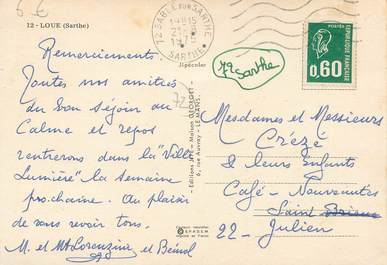 6 €
12 - LOUE (Sarthe)
72 SABLE SUR SARTHE
SARTHE
79 Sarthe
POSTES
0,60
REPUBLIQUE FRANÇAISE
Remerciements
Toutes nos amitiés
du Bon Séjour au
Calme et repos
rentrerons dans la "Ville
Lumière" la semaine
prochaine. Au plaisir
de vous revoir tous.
M. et Me Lorenzini et
72
LE MANS
Mesdames et Messieurs
Crézé
& leurs Enfants
Café - Nouveautés
Saint Brieuc
22 - Julien